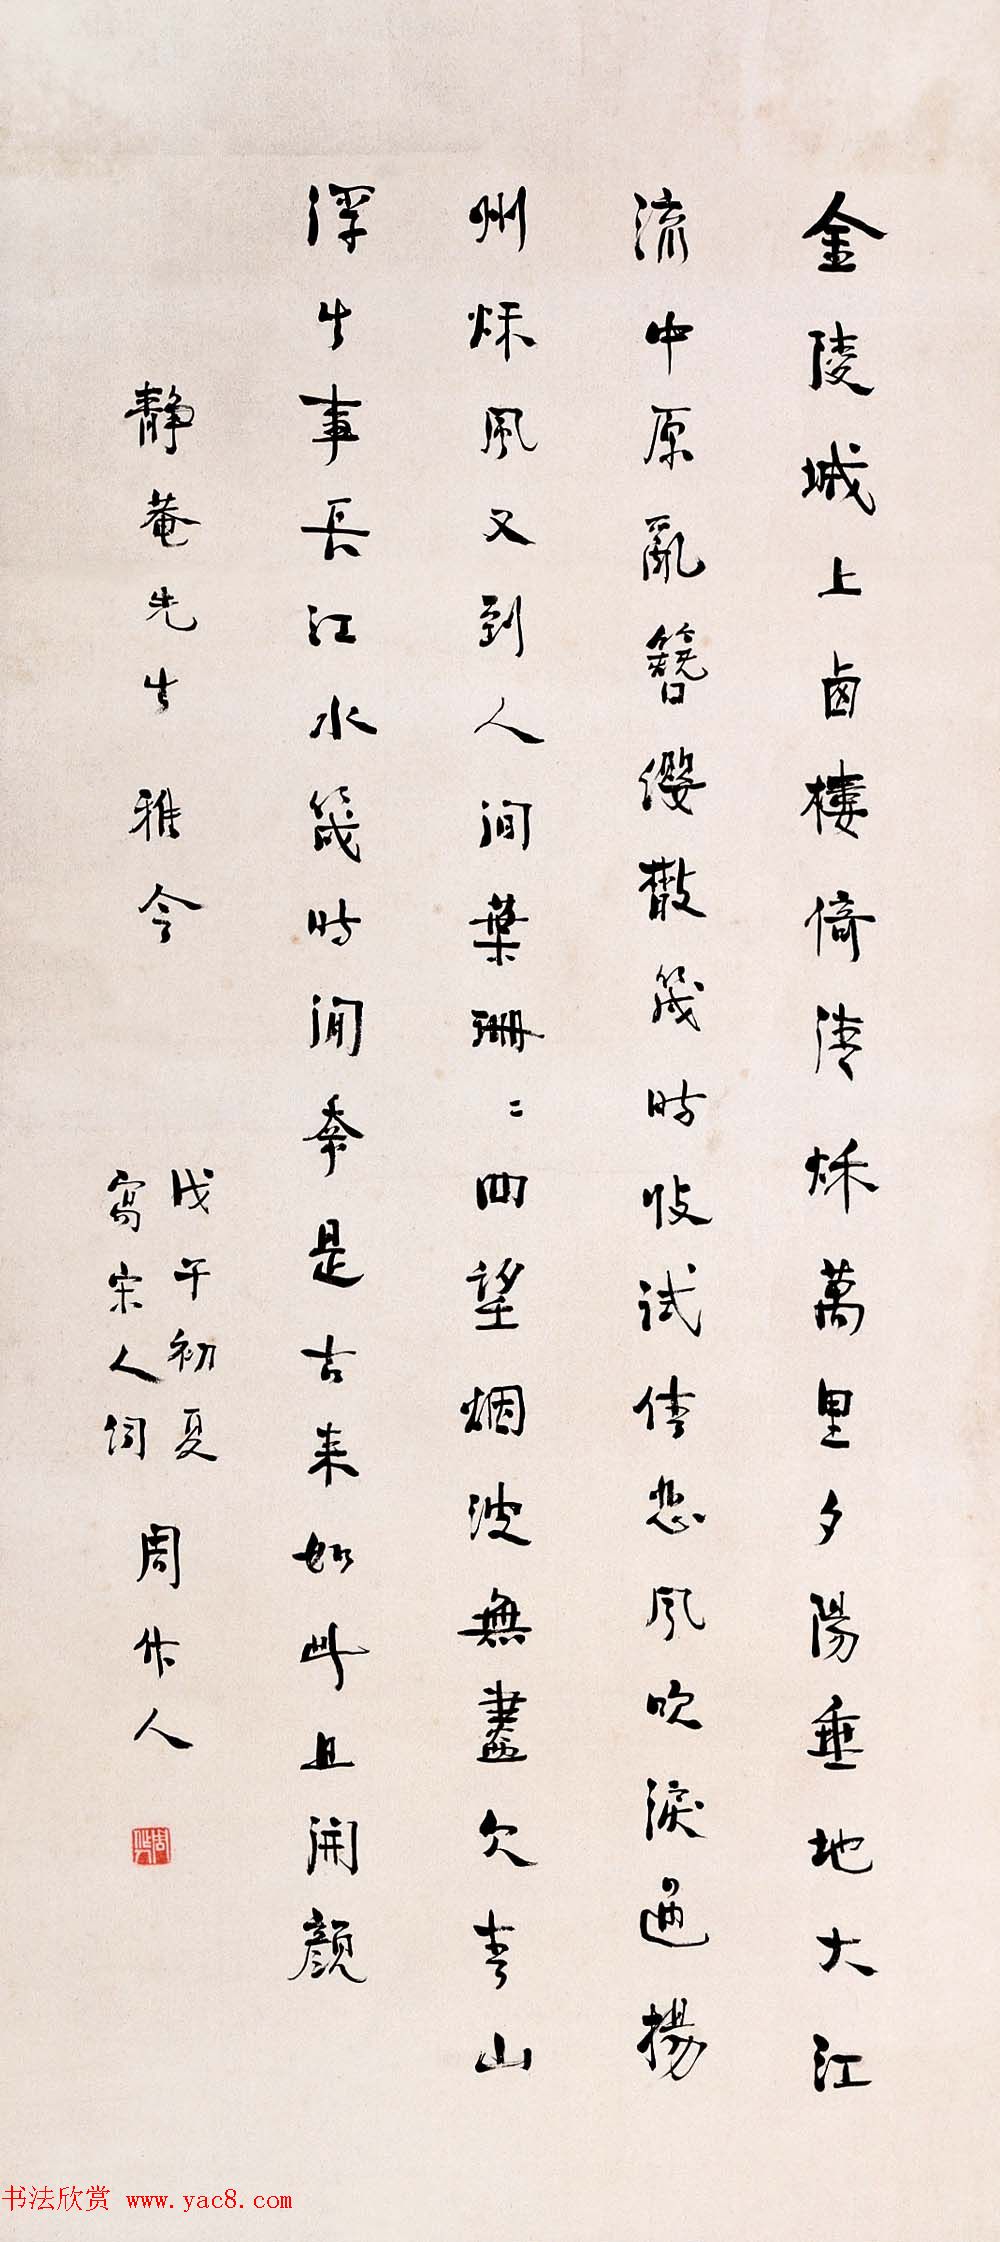 金陵城上卤樓倚清秌萬里夕陽垂地大江
流中原亂簪纓散筬時收試倩悲風吹淚過揚
州秌風又到人间葉珊〻四望烟波無盡欠青山
浮生事長江水筬時閒幸是古来如此且開顔
靜菴先生 雅令
戊午初夏
寫宋人词
周作人
周作人
书法欣赏 www.yac8.com